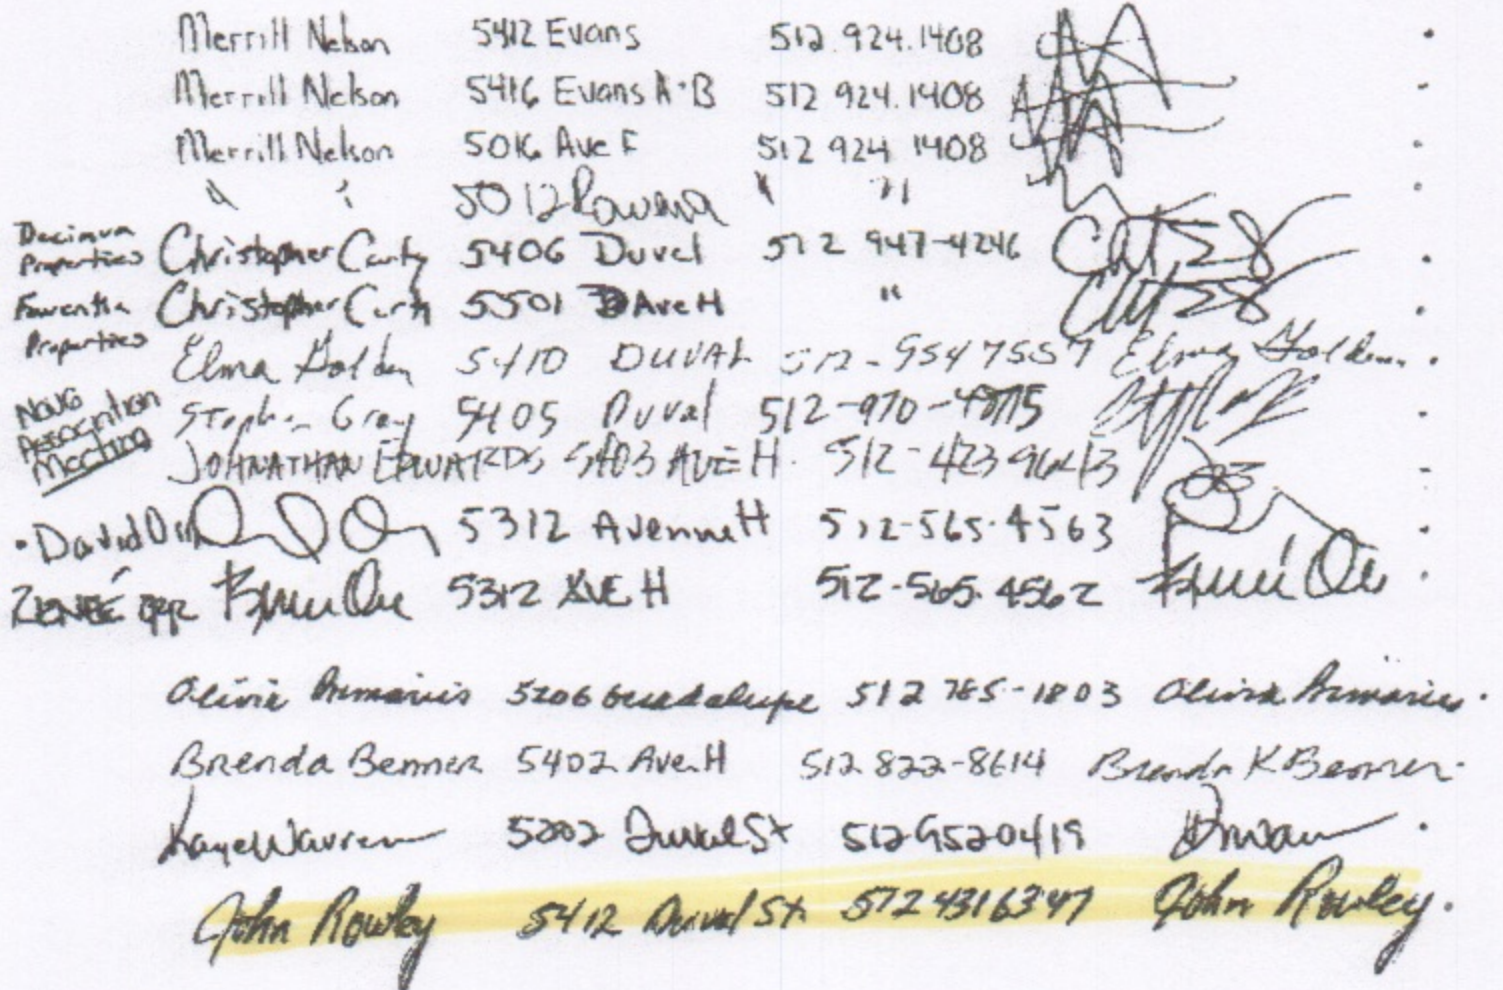 Merrill Nelson 5412 Evans 512.924.1408
Merrill Nelson 5416 Evans A+B 512 924.1408
Merrill Nelson 5016 Ave F 512 924 1408
" " 5012 Rowena " "
Properties Christopher 5406 Duval 512 947-4246
Properties Christopher 5501 Ave H "
Elma Golden 5410 DUVAL 512-954 7557 Elma Golden
Association Meeting Stephen Gray 5405 Duval 512-970-
JOHNATHAN EDWARDS 5403 AVE H. 512-423 9643
David Orr 5312 Avenue H 512-565-4563
RENEÉ ORR Renée Orr 5312 AVE H 512-565-4562 Renée Orr
Olivia 5206 Guadalupe 512 785-1803 Olivia
Brenda Benner 5402 Ave. H 512 822-8614 Brenda K Benner
Kaye Warren 5202 Duval St 512 952 0419
John Rowley 5412 Duval St 512 431 6347 John Rowley